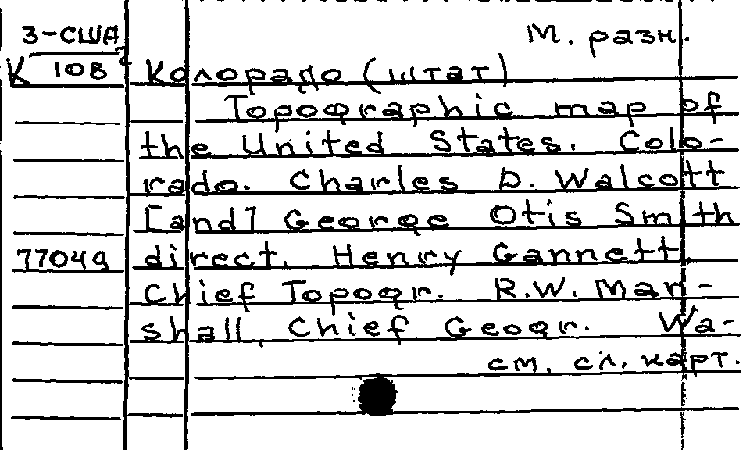 3-США
М. разн.
К 108
Колорадо (штат)
Topographic map of
the United States. Colo-
rado. Charles D. Walcott
[and] George Otis Smith
77049
direct. Henry Gannett,
Chief Topogr. R.W. Mar-
shall, Chief Geogr. Wa-
см. сл. карт.